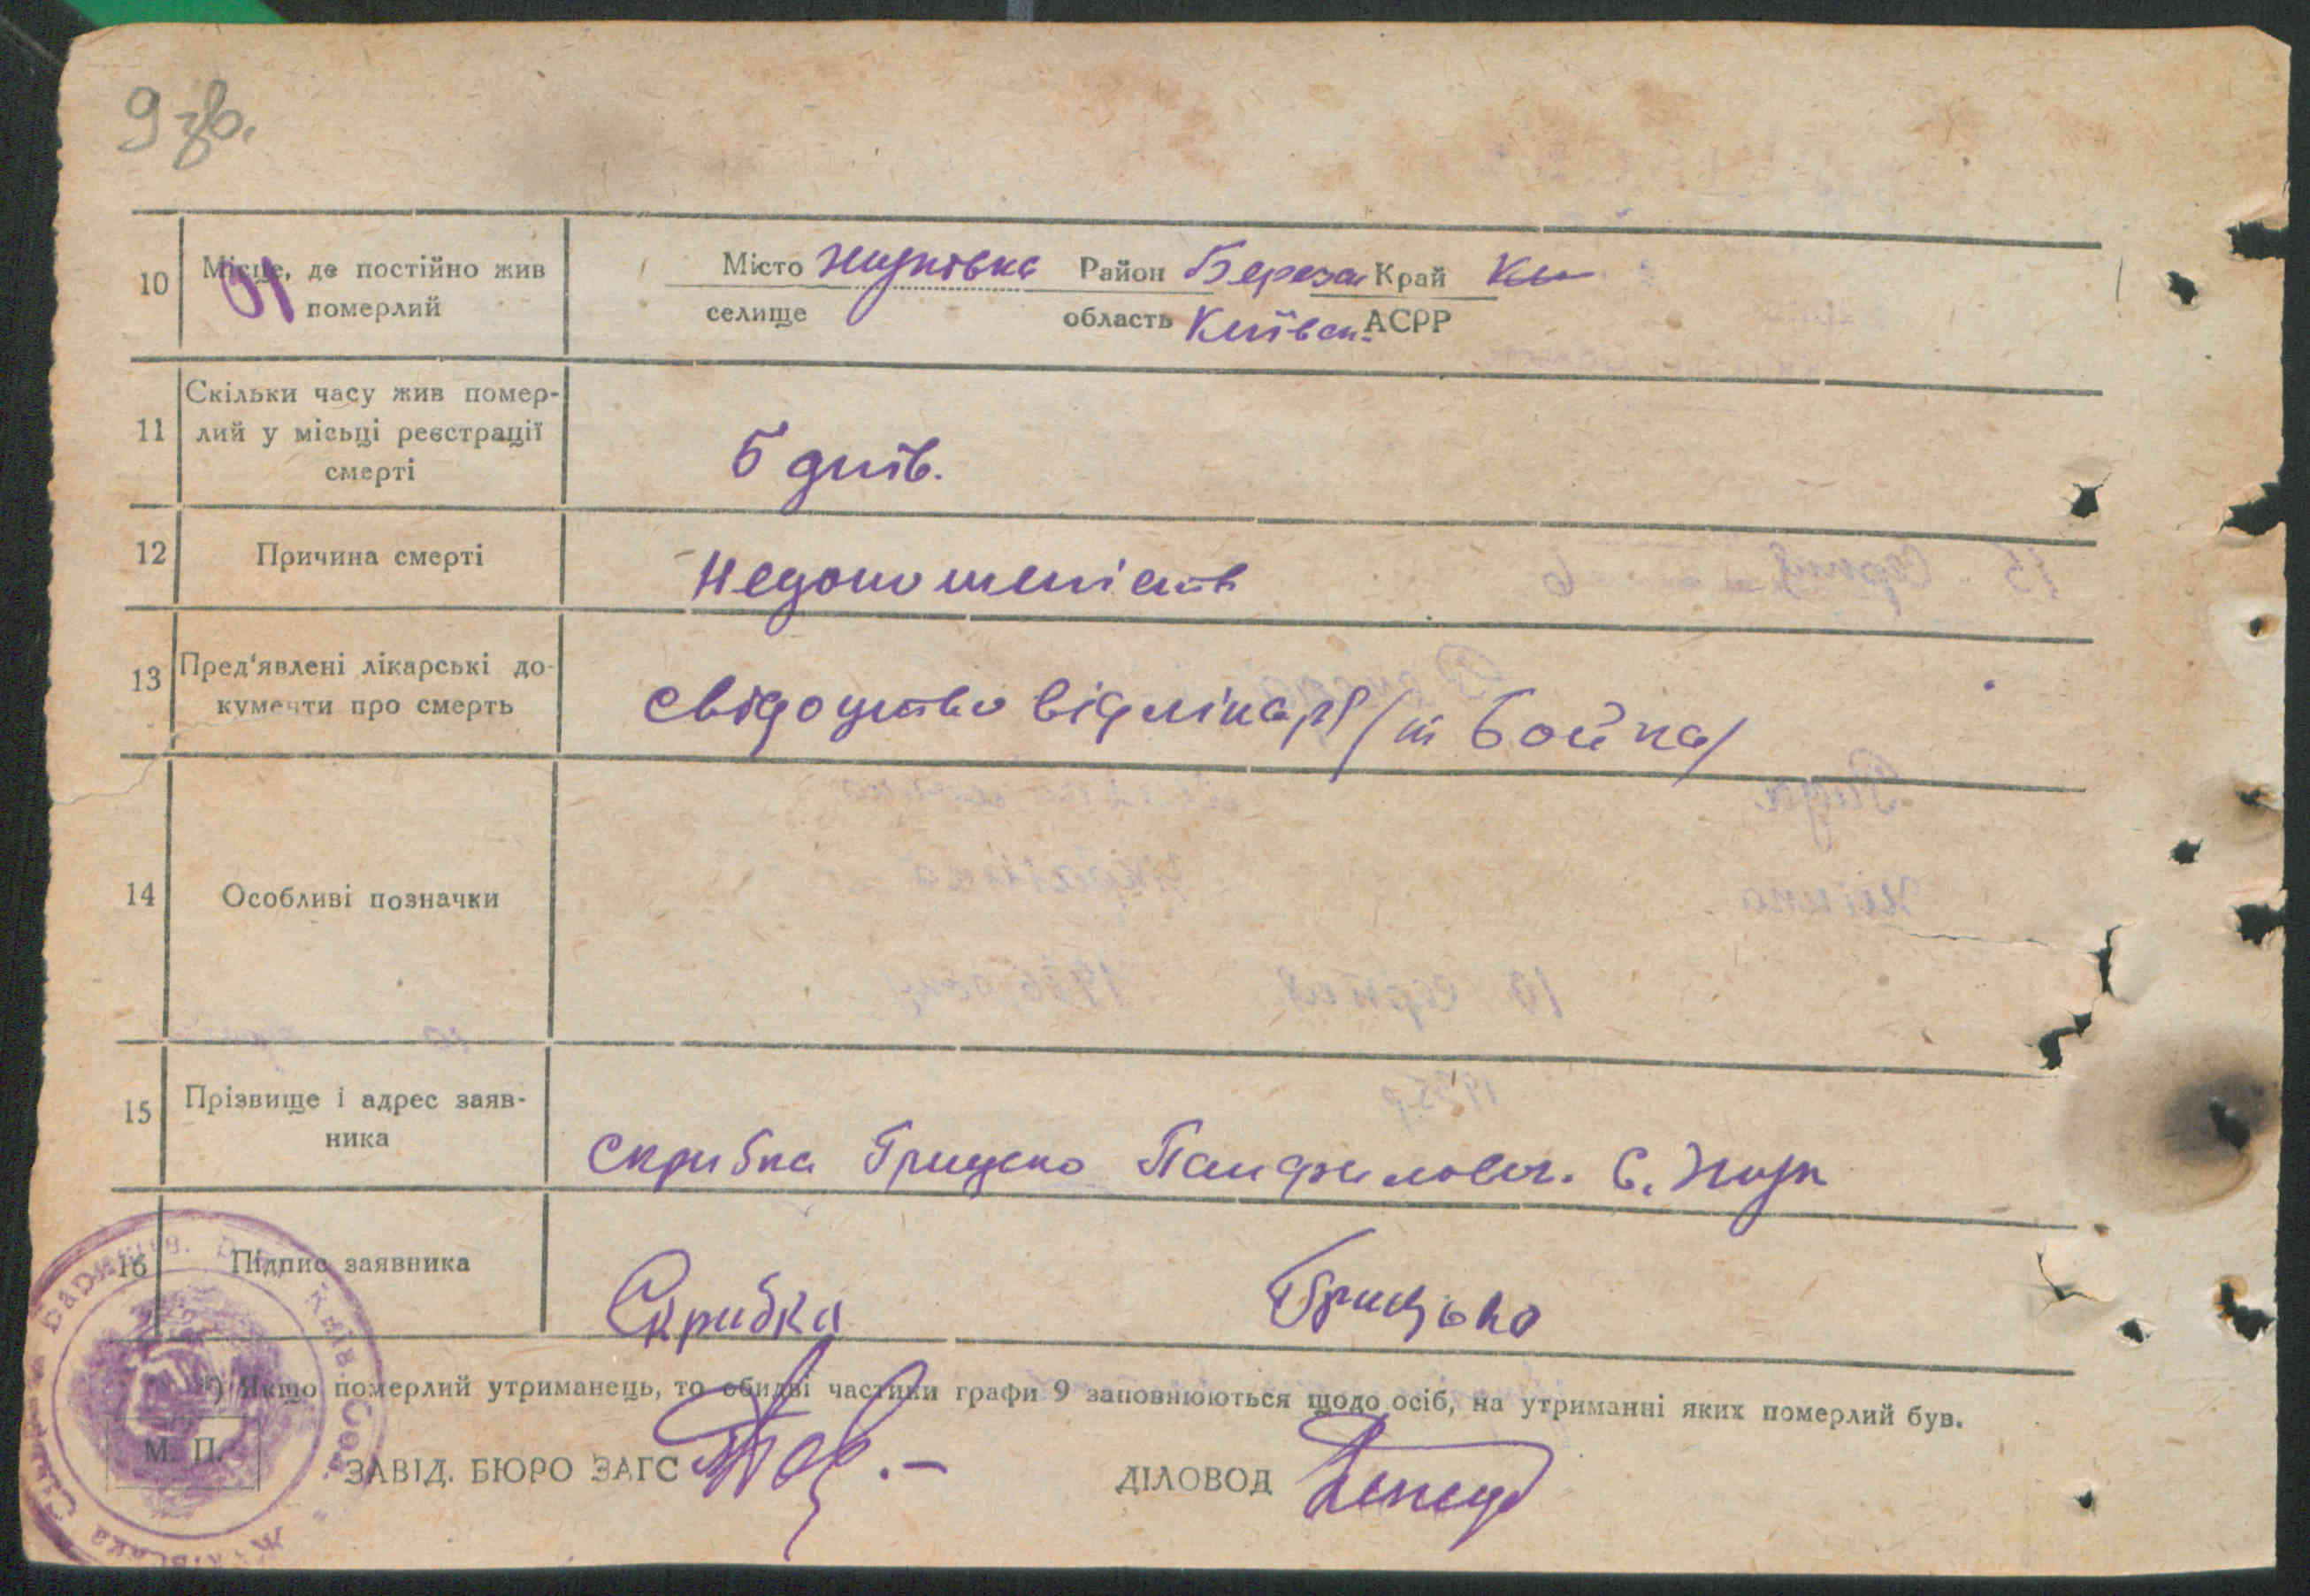 9 зв.
10 Місце, де постійно жив померлий
Місто Жуківка Район Береза Край Ки
селище область Київськ. АСРР
11 Скільки часу жив помер-
лий у місьці реєстрації
смерті
5 днів.
12 Причина смерті
Недоношеність
13 Пред'явлені лікарські до-
кументи про смерть
свідоцтво від лікаря (Бойка)
14 Особливі позначки
15 Прізвище і адрес заяв-
ника
Скрибка Грицько Панфилович. С. Жук
16 Підпис заявника
Скрибка Грицько
*) Якщо померлий утриманець, то обидві частини графи 9 заповнюються щодо осіб, на утриманні яких померлий був.
М. П.
ЗАВІД. БЮРО ЗАГС
ДІЛОВОД